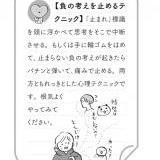 【負の考えを止めるテ
クニック】「止まれ」標識
を頭に浮かべて思考をそこで中断
させる。もしくは手に輪ゴムをはめ
て、止まらない負の考えが起きたら
パチンと弾いて、痛みで止める。両
方ともれっきとした心理テクニック
です。根気よく
やってみて
ください。